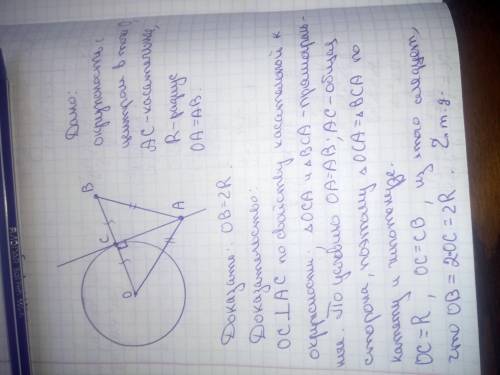 Дано:
окружность с
центром в точке O
AC-касательная,
R-радиус
OA=AB.
B
C
A
O
Доказать: OB=2R.
Доказательство:
OC⊥AC по свойству касательной к
окружности; △OCA и △BCA-прямоуголь-
ные. По условию OA=AB; AC-общая
сторона, поэтому △OCA=△BCA по
катету и гипотенузе.
OC=R, OC=CB, из этого следует,
что OB=2OC=2R. Ч.т.д.